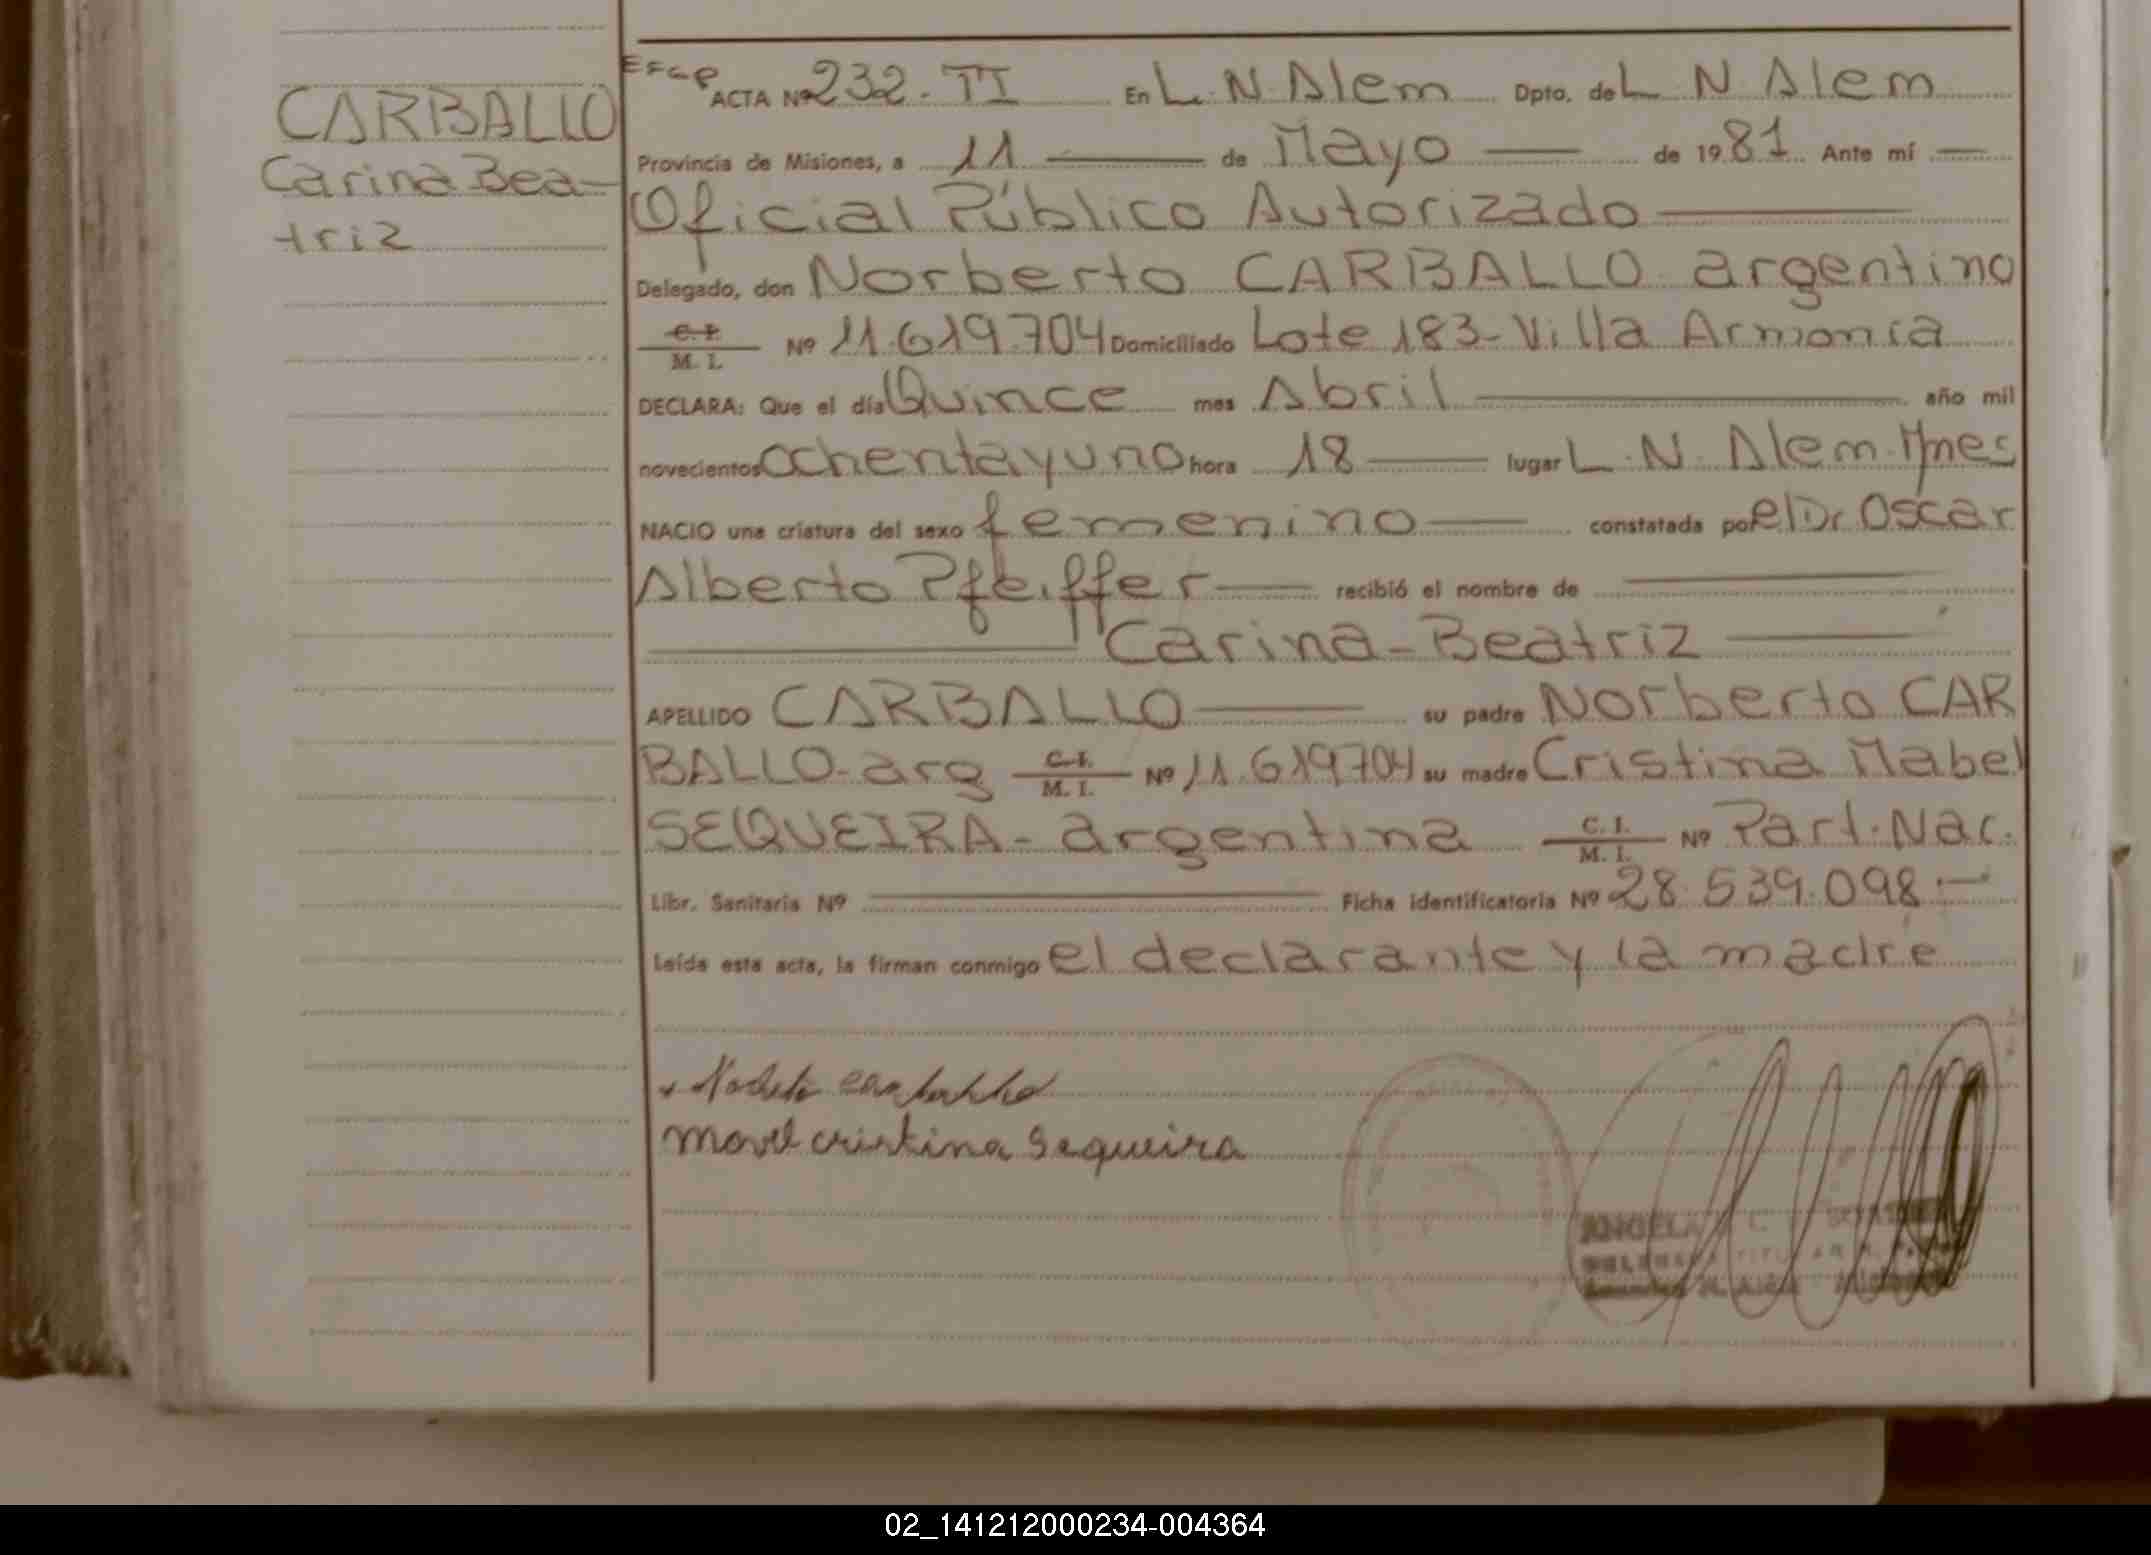 CARBALLO
Carina Bea-
triz
ACTA Nº 232-TI En L. N. Alem Dpto. de L N Alem
Provincia de Misiones, a 11 de Mayo de 1981 Ante mí
Oficial Público Autorizado
Delegado, don Norberto CARBALLO argentino
C. I. M. I. Nº 11.619.704 Domiciliado Lote 183-Villa Armonía
DECLARA: Que el día Quince mes Abril año mil
novecientos ochentayuno hora 18 lugar L. N. Alem. Mnes
NACIO una criatura del sexo femenino constatada por el Dr Oscar
Alberto Pfeiffer recibió el nombre de
Carina-Beatriz
APELLIDO CARBALLO su padre Norberto CAR
BALLO-arg C. I. M. I. Nº 11.619704 su madre Cristina Mabel
SEQUEIRA-argentina C. I. M. I. Nº Part. Nac.
Libr. Sanitaria Nº Ficha identificatoria Nº 28.539.098.-
Leída esta acta, la firman conmigo el declarante y la madre
carballo
movel cristina Sequeira
ANGELA
02_141212000234-004364